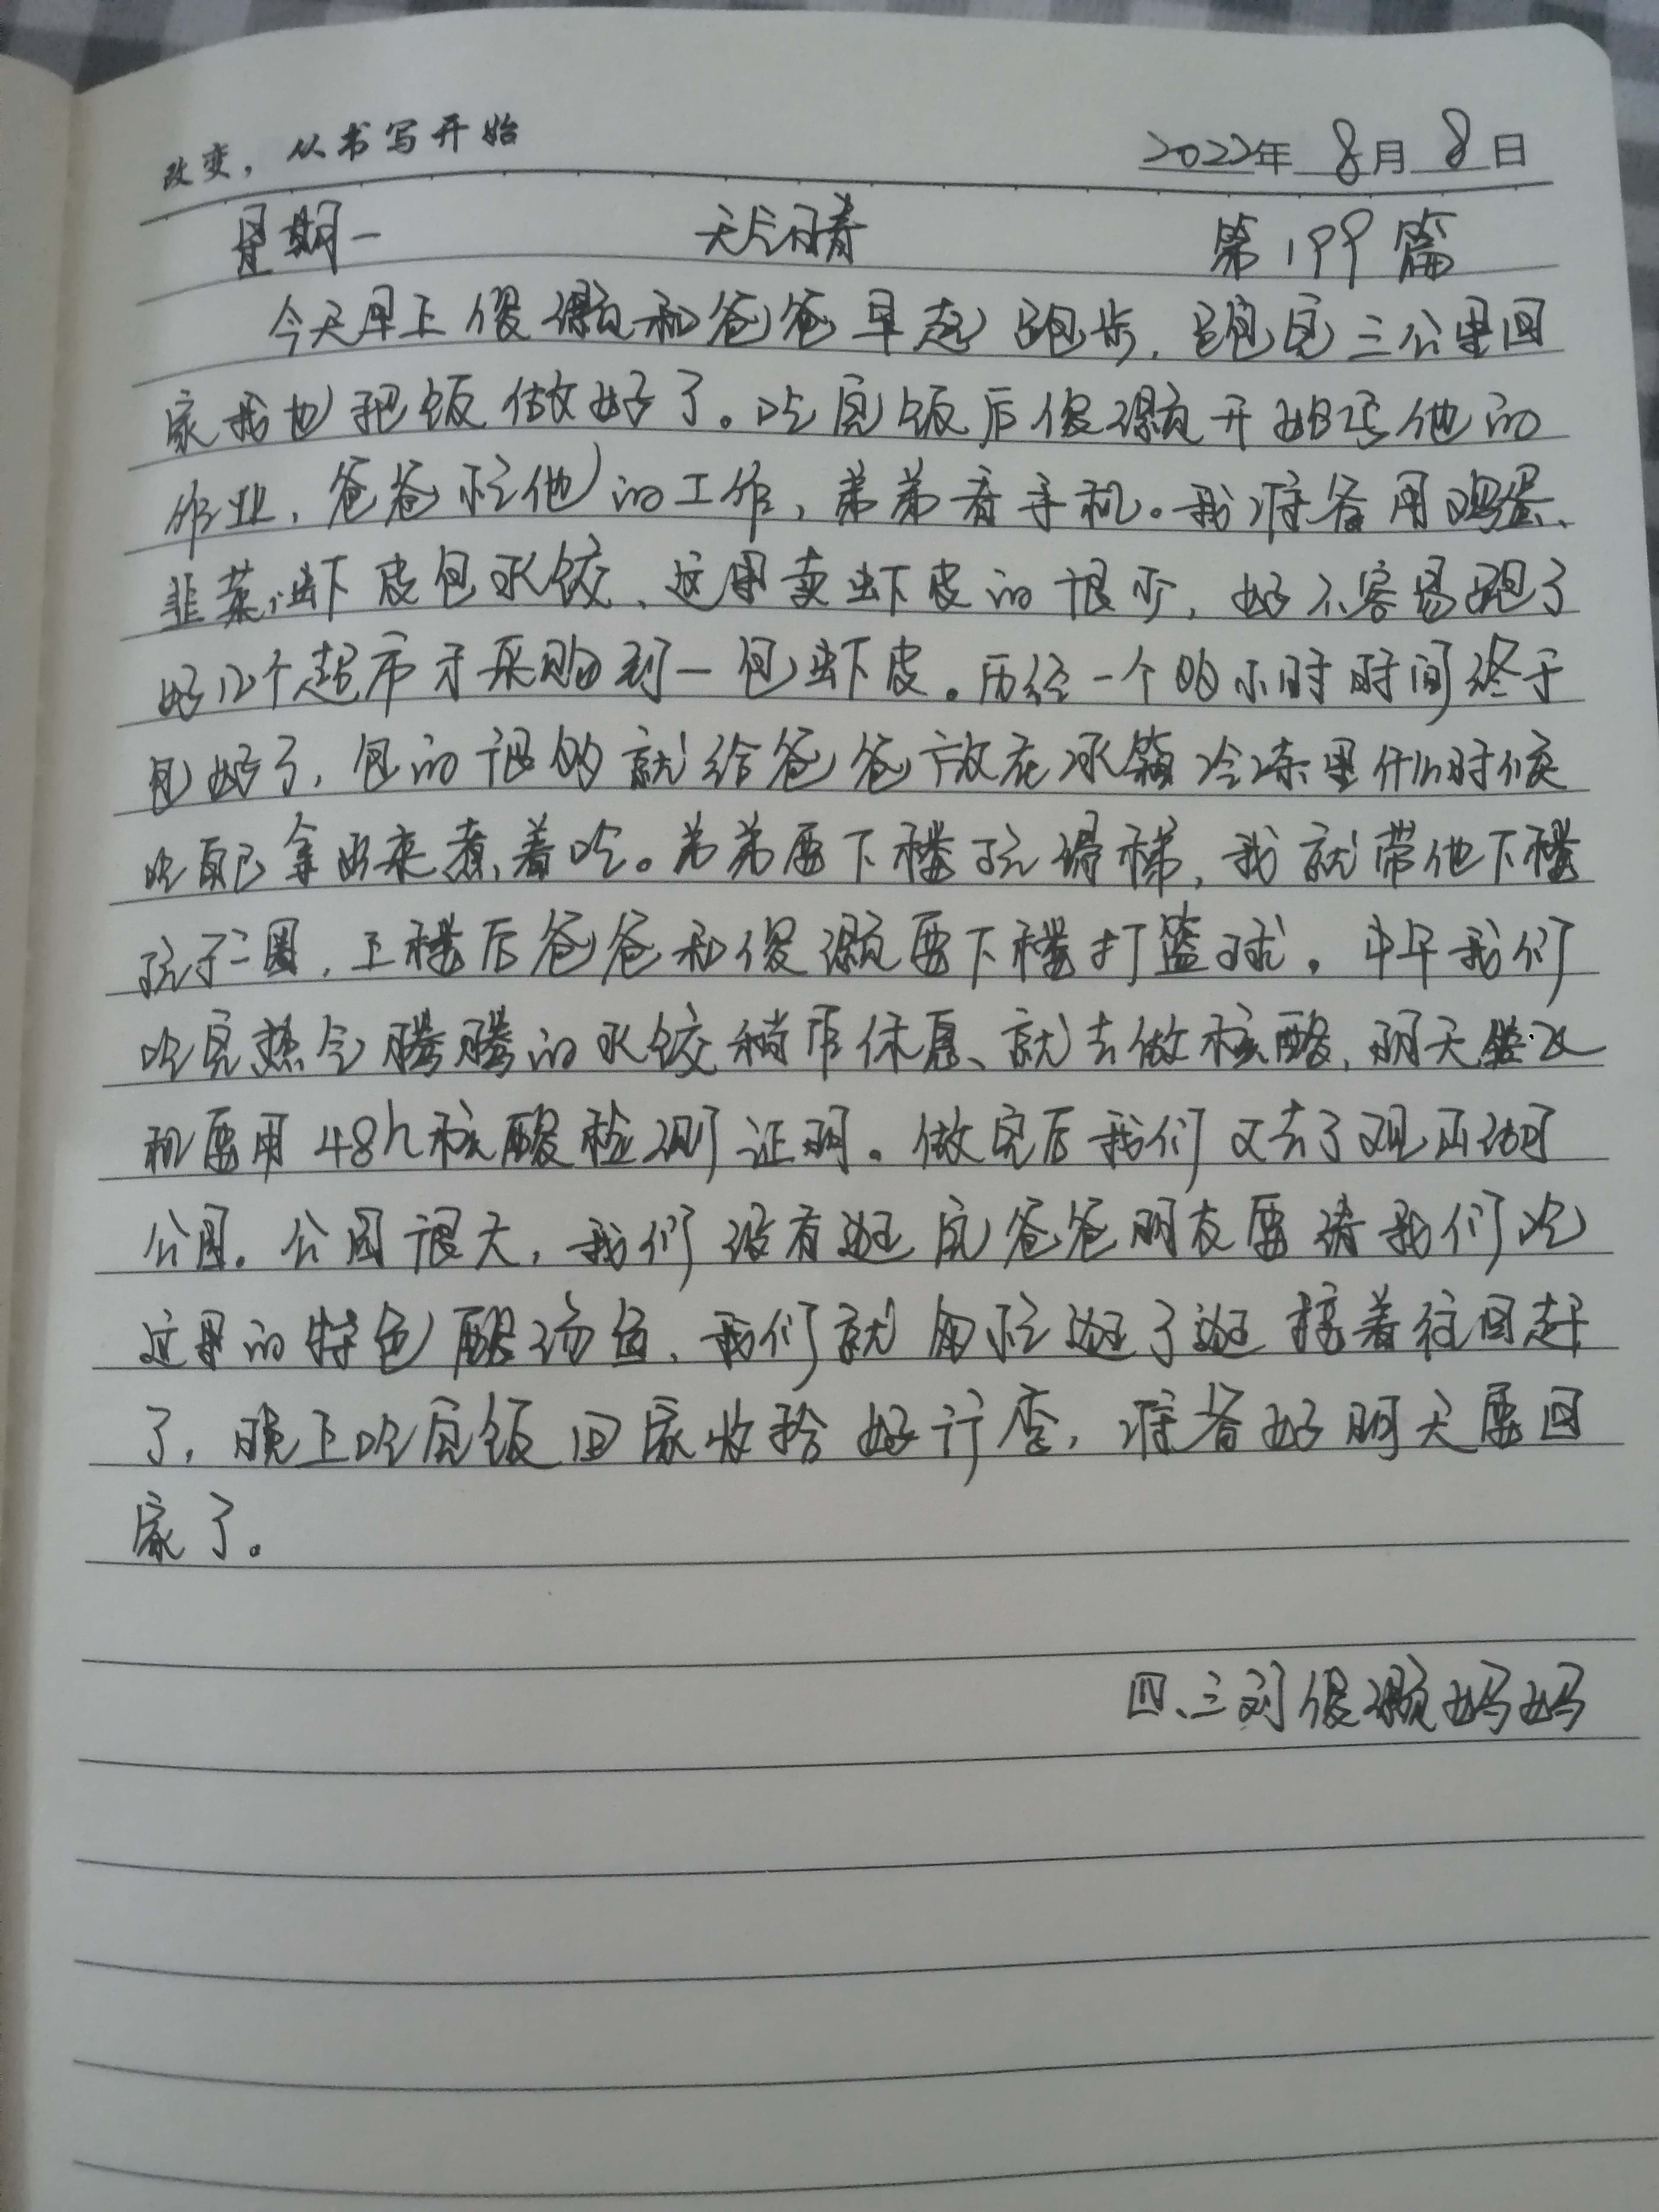 改变，从书写开始
2022年 8月 8日
星期一 天气晴 第199篇
今天早上俊灏和爸爸早起跑步，跑完三公里回
家我也把饭做好了。吃完饭后俊灏开始写他的
作业，爸爸忙他的工作，弟弟看手机。我准备用鸡蛋、
韭菜、虾皮包水饺，这里卖虾皮的很少，好不容易跑了
好几个超市才采购到一包虾皮。历经一个多小时时间终于
包好了，包的很多就给爸爸放在冰箱冷冻里什么时候
吃自己拿出来煮着吃。弟弟要下楼玩滑梯，我就带他下楼
玩了一圈，上楼后爸爸和俊灏要下楼打篮球。中午我们
吃完热气腾腾的水饺稍作休息、就去做核酸，明天坐飞
机要用48h核酸检测证明。做完后我们又去了观山湖
公园。公园很大，我们没有逛完爸爸朋友要请我们吃
这里的特色酸汤鱼，我们就匆忙逛了逛接着往回赶
了，晚上吃完饭回家收拾好行李，准备好明天要回
家了。
四、三刘俊灏妈妈